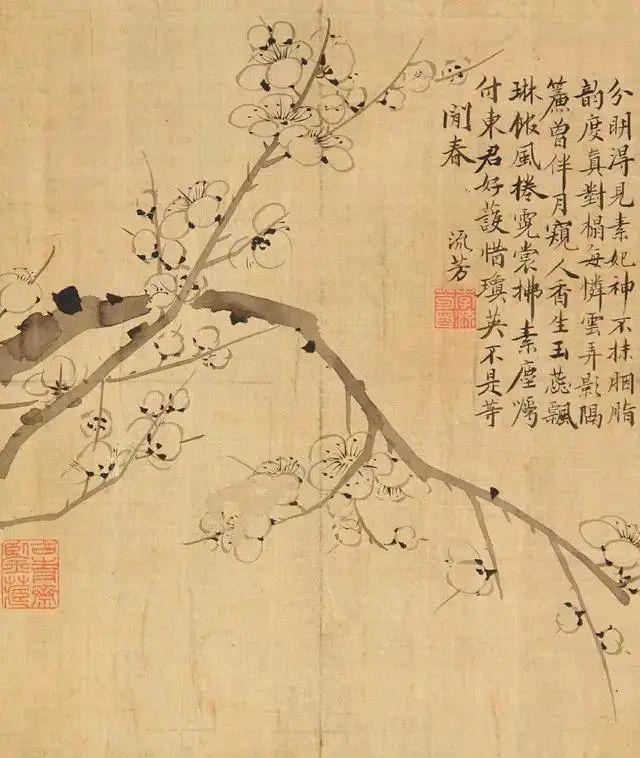 分明淂見素妃神不抹胭脂
韵度真對榻每憐雲弄影隔
簾曾伴月窺人香生玉蕊飄
琳館風捲霓裳拂素塵囑
付東君好護惜瓊英不是等
閒春
流芳
李流芳印